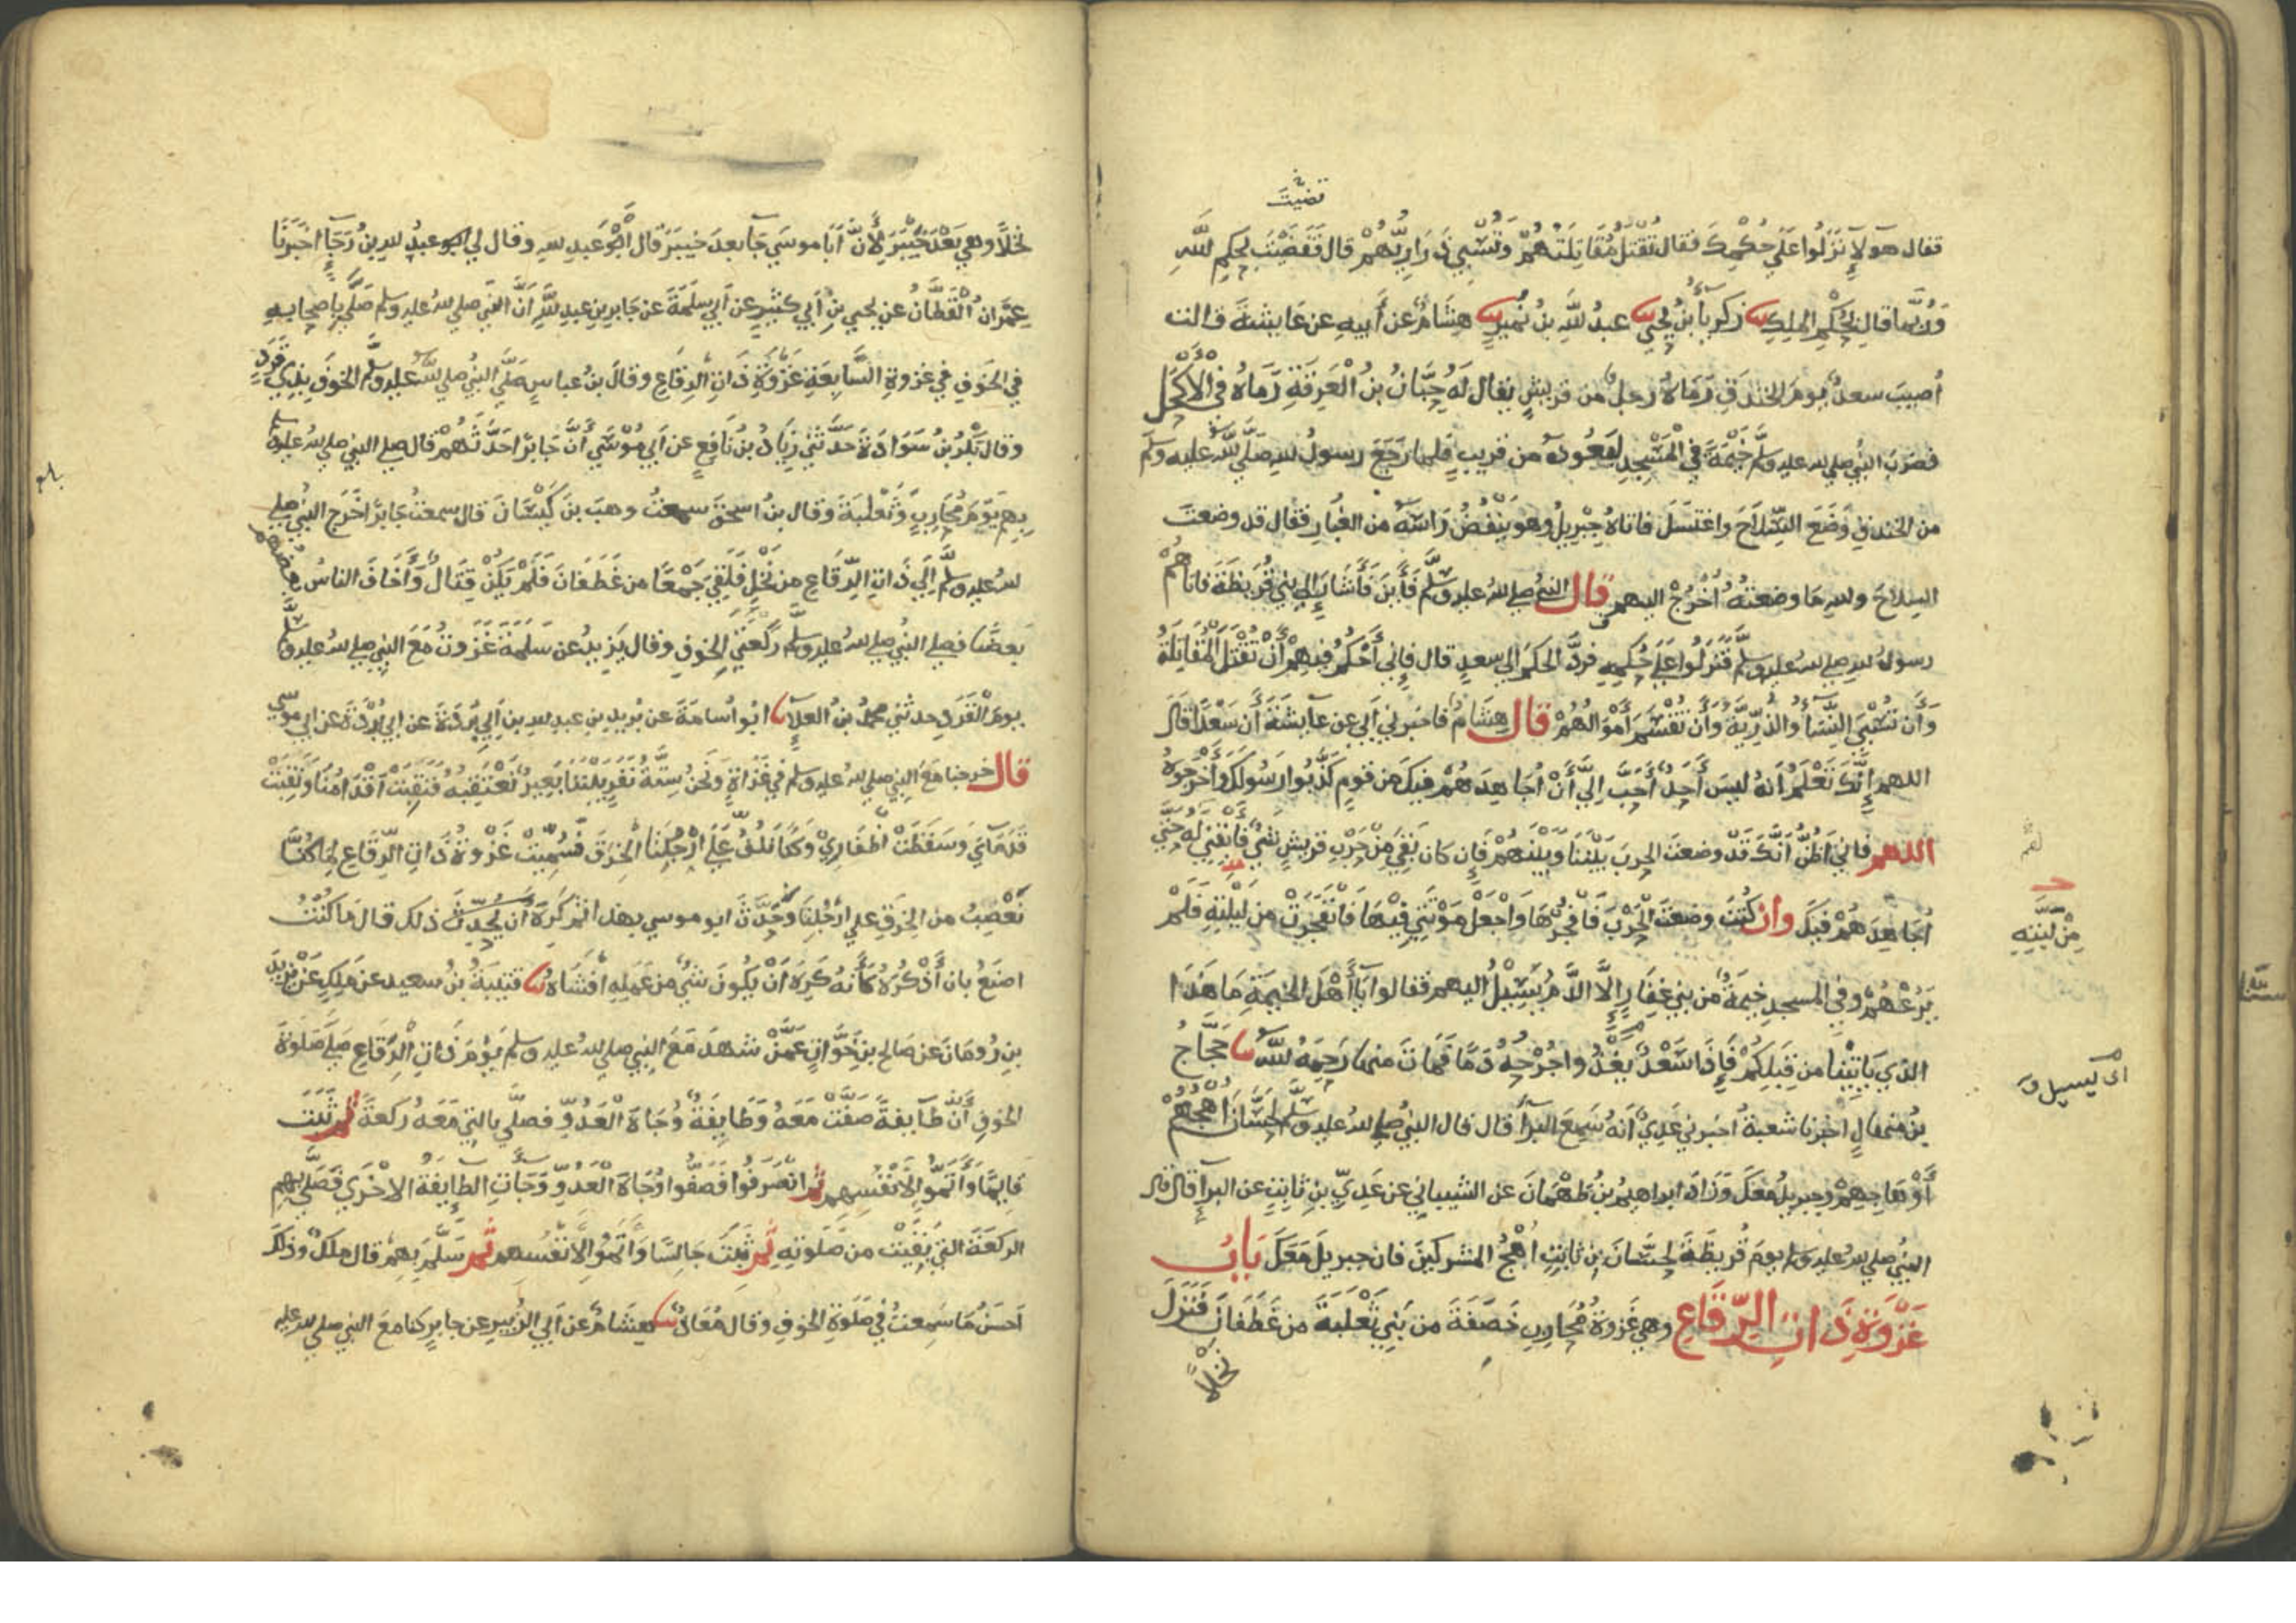 قضيت
فقال هولاء نزلوا على حكمك فقال تقتل مقاتلتهم وتسبي ذراريهم قال فقضيت بحكم الله
وربما قال بحكم الملك زكرياء بن يحيى عبد الله بن نمير هشام عن أبيه عن عايشة قالت
أصيب سعد يوم الخندق رماه رجل من قريش يقال له حبان بن العرقة رماه في الأكحل
فضرب النبي صلى الله عليه وسلم خيمة في المسجد ليعوده من قريب فلما رجع رسول الله صلى الله عليه وسلم
من الخندق وضع السلاح واغتسل فاتاه جبريل وهو ينفض راسه من الغبار فقال قد وضعت
السلاح والله ما وضعته أخرج اليهم قال النبي صلى الله عليه وسلم فأين فأشار إلى بني قريظة فاتاهم
رسول الله صلى الله عليه وسلم فنزلوا على حكمه فرد الحكم الى سعد قال فإني أحكم فيهم أن تقتل المقاتلة
وأن تسبى النساء والذرية وأن تقسم أموالهم قال هشام فاخبرني أبي عن عايشة أن سعدا قال
اللهم إنك تعلم أنه ليس أحد أحب إلي أن أجاهدهم فيك من قوم كذبوا رسولك وأخرجوه
اللهم فإني أظن أنك قد وضعت الحرب بيننا وبينهم فإن كان بقي من حرب قريش شيء فأبقني له حتى
أجاهدهم فيك وإن كنت وضعت الحرب فافجرها واجعل موتتي فيها فانفجرت من ليلته فلم
من لبته
يرعهم وفي المسجد خيمة من بني غفار إلا الدم يسيل اليهم فقالوا يا أهل الخيمة ما هذا
الذي ياتينا من قبلكم فإذا سعد يغذو جرحه دما فمات منها رحمه الله حجاج
اى يسيل
بن منهال اخبرنا شعبة اخبرني عدي أنه سمع البراء قال قال النبي صلى الله عليه وسلم لحسان اهجهم
أو هاجهم وجبريل معك وزاد ابراهيم بن طهمان عن الشيباني عن عدي بن ثابت عن البراء قال قال
النبي صلى الله عليه وسلم يوم قريظة لحسان بن ثابت اهج المشركين فان جبريل معك باب
غزوة ذات الرقاع وهي غزوة محارب خصفة من بني ثعلبة من غطفان فنزل
نخلا
نخلا وهي بعد خيبر لأن أبا موسى جا بعد خيبر قال أبو عبد الله وقال لي عبد الله بن رجاء اخبرنا
عمران القطان عن يحيى بن أبي كثير عن أبي سلمة عن جابر بن عبد الله أن النبي صلى الله عليه وسلم صلى بأصحابه
في الخوف في غزوة السابعة غزوة ذات الرقاع وقال بن عباس صلى النبي صلى الله عليه وسلم الخوف بذي قرد
وقال بكر بن سوادة حدثني زياد بن نافع عن أبي موسى أن جابرا حدثهم قال صلى النبي صلى الله عليه وسلم
بهم يوم محارب وثعلبة وقال بن اسحق سمعت وهب بن كيسان قال سمعت جابرا خرج النبي صلى
الله عليه وسلم إلى ذات الرقاع من نخل فلقي جمعا من غطفان فلم يكن قتال وأخاف الناس بعضهم
بعضا فصلى النبي صلى الله عليه وسلم ركعتي الخوف وقال يزيد عن سلمة غزوت مع النبي صلى الله عليه وسلم
يوم القرد حدثني محمد بن العلاء ابو اسامة عن بريد بن عبد الله بن أبي بردة عن أبي بردة عن ابي موسى
قال خرجنا مع النبي صلى الله عليه وسلم في غزاة ونحن ستة نفر بيننا بعير نعتقبه فنقبت أقدامنا ونقبت
قدماي وسقطت أظفاري وكنا نلف على أرجلنا الخرق فسميت غزوة ذات الرقاع لما كنا
نعصب من الخرق على أرجلنا وحدث ابو موسى بهذا ثم كره أن يحدث ذلك قال ما كنت
اصنع بان أذكره كأنه كره أن يكون شيء من عمله أفشاه قتيبة بن سعيد عن ملك عن يزيد
بن رومان عن صالح بن خوات عمن شهد مع النبي صلى الله عليه وسلم يوم ذات الرقاع صلى صلوة
الخوف أن طايفة صفت معه وطايفة وجاه العدو فصلى بالتي معه ركعة ثم ثبت
قايما وأتموا لأنفسهم ثم انصرفوا فصفوا وجاه العدو وجات الطايفة الاخرى فصلى بهم
الركعة التي بقيت من صلوته ثم ثبت جالسا وأتموا لأنفسهم ثم سلم بهم قال ملك وذلك
أحسن ما سمعت في صلوة الخوف وقال معاذ هشام عن أبي الزبير عن جابر كنا مع النبي صلى الله عليه